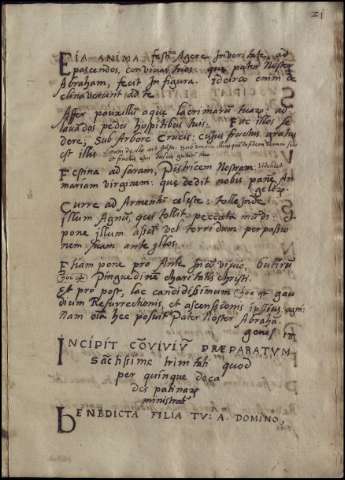 21
EIA ANIMA festina Agere in veritate, ad
pascendos convivas tres. que pater Noster
Abraham, fecit in figura. ideirco enim de
clinaverunt ad te
Affer pauxillum aque lacrimarum tuarum ad
lavandos pedes hospitibus tuis. Fac illos se
dere, Sub Arbore Crucis: cujus fructus gratus
est illis
Festina ad saram, Pistricem Nostram:
mariam virginem: que dedit nobis panem An
gelorum
Curre ad Armentum celeste: tolle inde
Illum Agnum, qui tollit peccata mundi:
pone illum assatum vel torridum per passio
nem suam ante illos
Etiam pone pro Ante in convivio, butirum
Pinguedinem charitatis christi
Et pro post, lac candidissimum gau
dium Resurrectionis, et ascensionis ipsius,
nam omnia hec posuit Pater Noster Abraham
genes
INCIPIT COVIVIV PRÆPARATVM
sanctissime trinitati quod
per quinque deca
des
ministrat
bENEDICTA FILIA TV: A DOMINO,